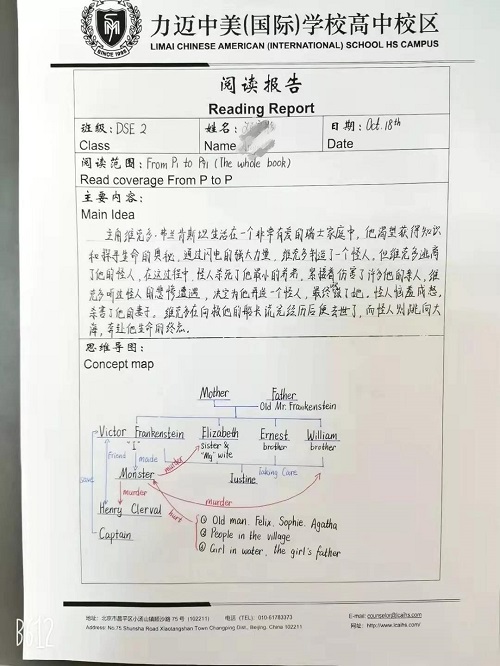 力迈中美(国际)学校高中校区
LIMAI CHINESE AMERICAN (INTERNATIONAL) SCHOOL HS CAMPUS
SINCE 1998
阅读报告
Reading Report
班级: DSE 2 姓名: 日期: Oct. 18th
Class Name Date
阅读范围: From P1 to P91 (The whole book)
Read coverage From P to P
主要内容:
Main Idea
主角维克多·弗兰肯斯坦生活在一个非常有爱的瑞士家庭中,他渴望获得知识
和探寻生命的奥秘。通过闪电的强大力量,维克多制造了一个怪人,但维克多逃离
了他的怪人,在这过程中,怪人杀死了他最小的弟弟,紧接着伤害了许多他的亲人,维
克多听过怪人的悲惨遭遇,决定为他再造一个怪人,最终毁了她。怪人恼羞成怒,
杀害了他的妻子。维克多在向救他的船长说完经历后便去世了,而怪人则跳向大
海,奔赴他生命的终点。
思维导图:
Concept map
Mother Father
Old Mr. Frankenstein
Victor Frankenstein Elizabeth Ernest William
"I" sister & brother brother
"My" wife
friend made murder
Monster Justine taking care
save
murder murder
Henry Clerval hurt
① Old man. Felix. Sophie. Agatha
Captain ② People in the village
③ Girl in water, the girl's father
地址: 北京市昌平区小汤山镇顺沙路 75 号 (102211) 电话 (TEL). 010-61783373 E-mail: counselor@lcaihs.com
Address: No.75 Shunsha Road Xiaotangshan Town Changping Dist., Beijing, China 102211 网址: http://www.lcaihs.com/
B612